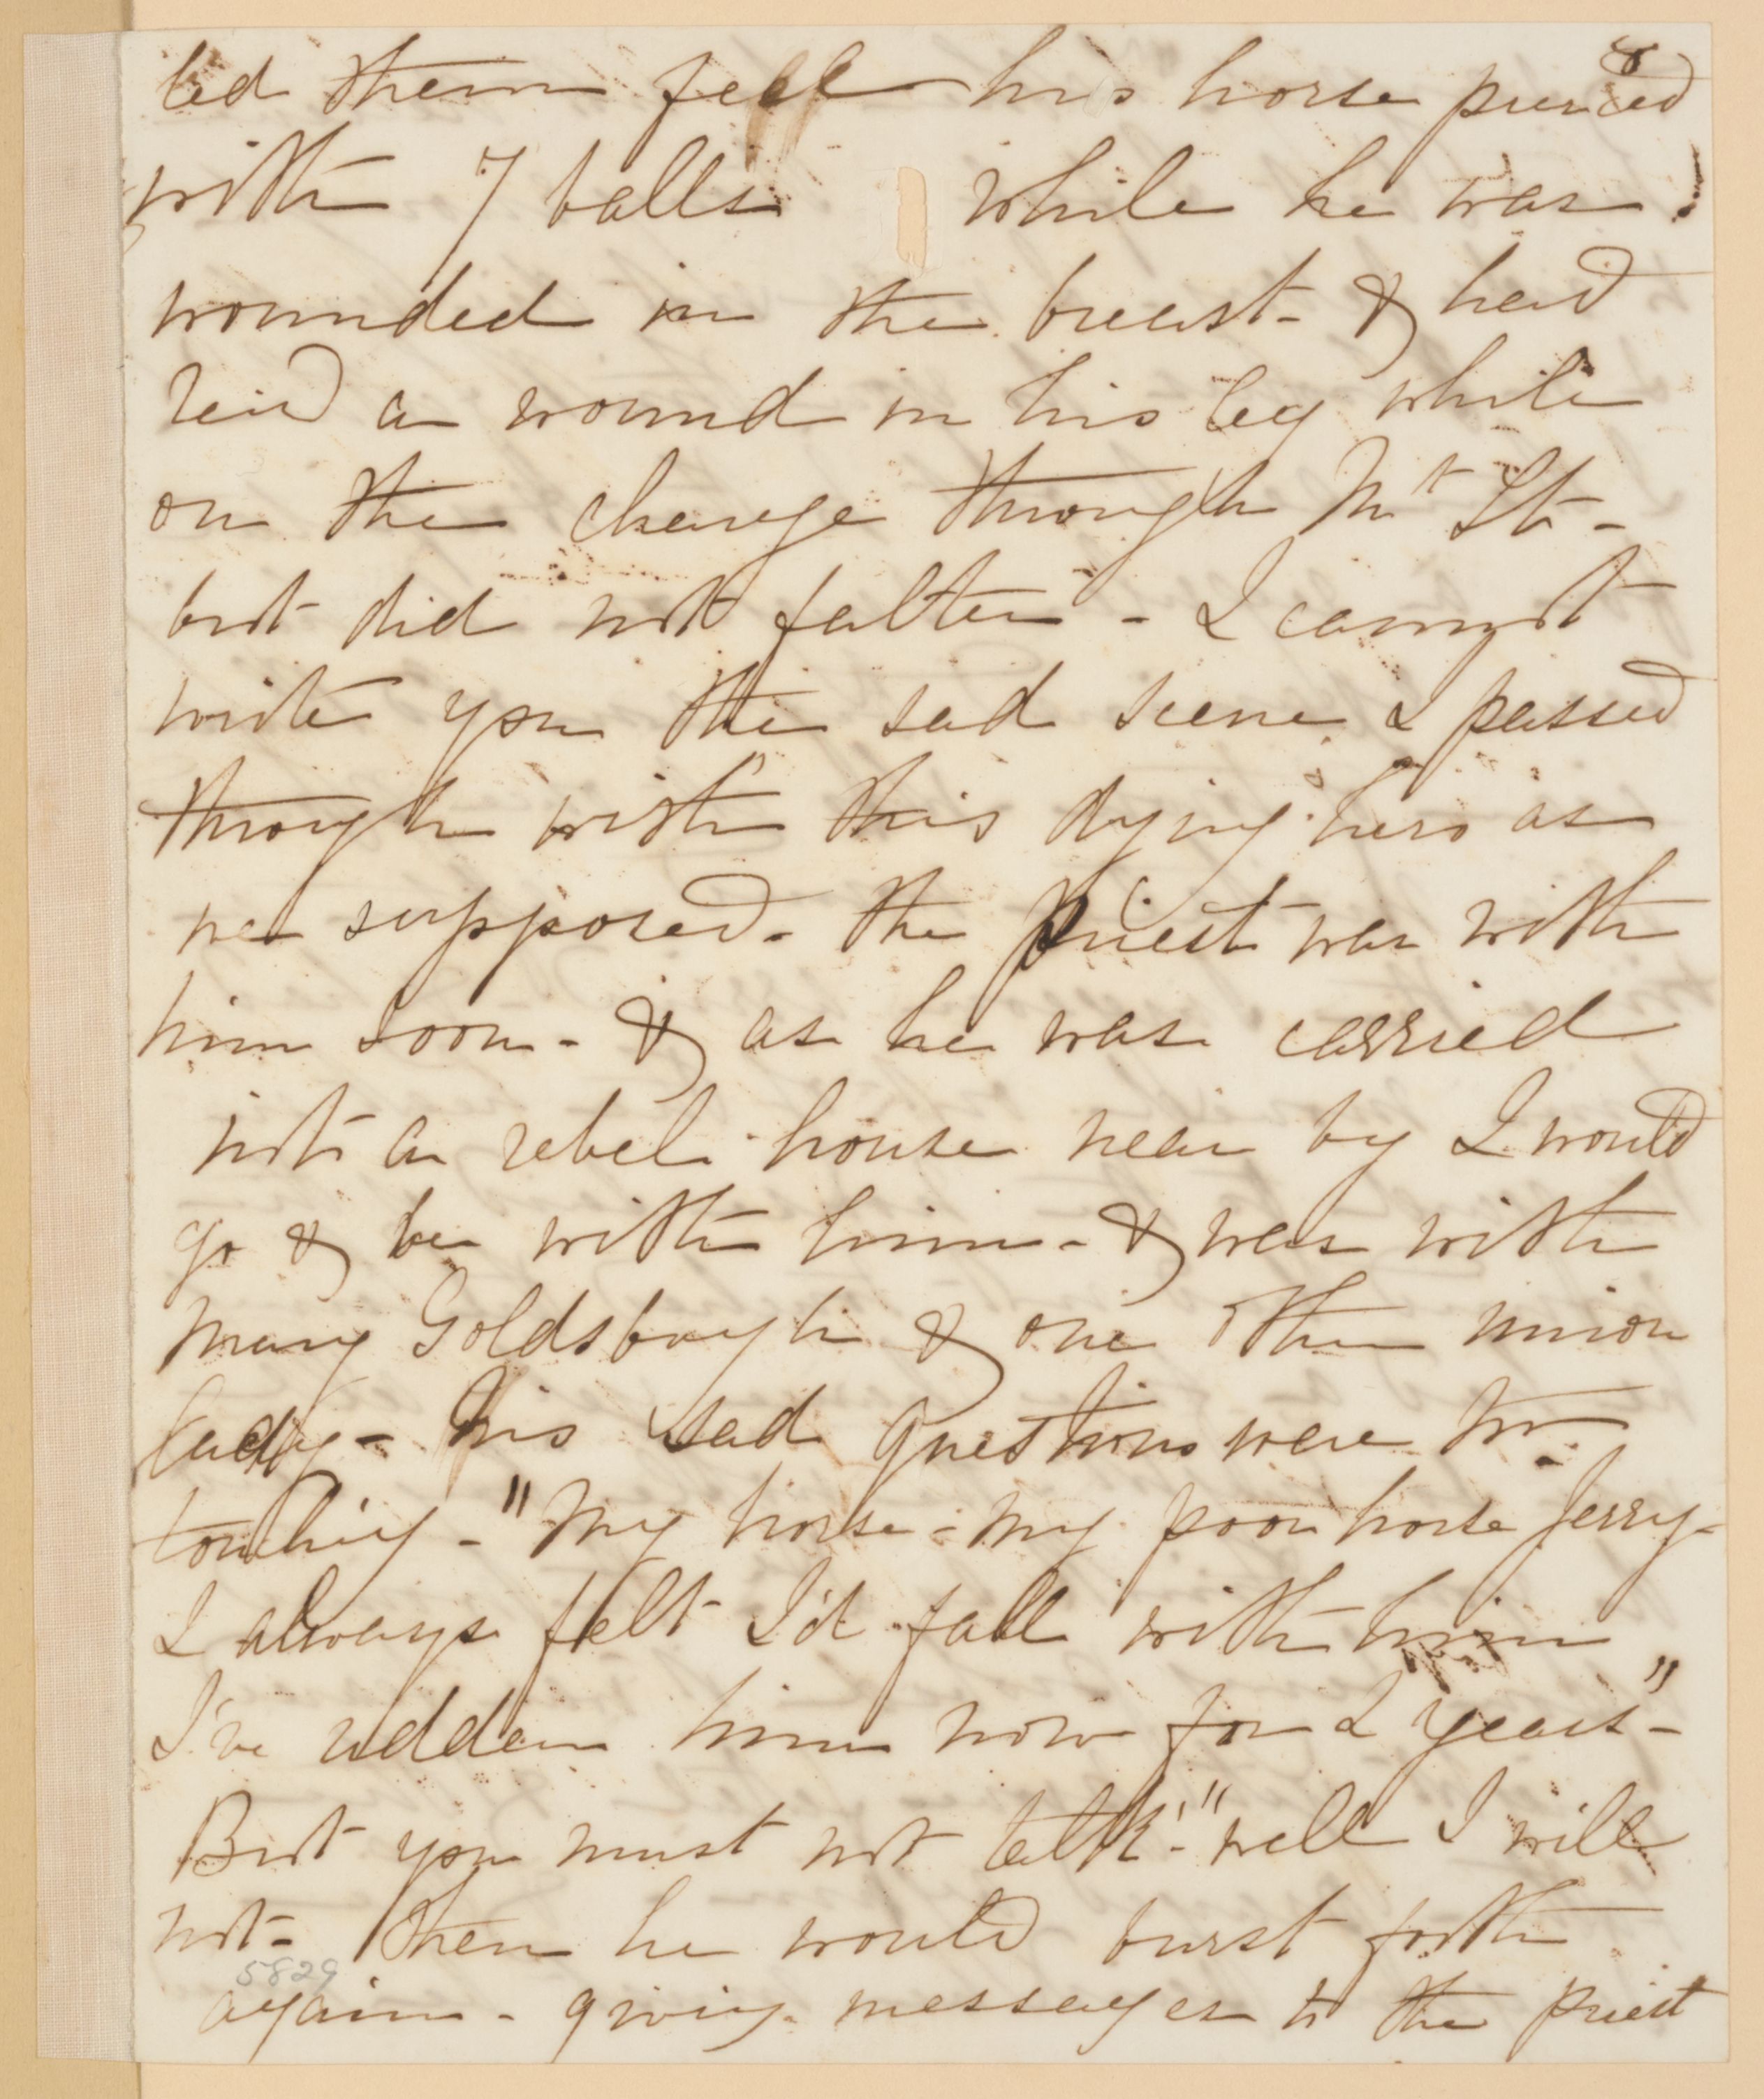 8
led them fell his horse pierced
with 7 balls while he was
wounded in the breast - & had
rec'd a wound in his leg while
on the charge through Mt St -
but did not falter - I cannot
write you the sad scene I passed
through with this dying hero as
we supposed - the Priest was with
him soon - & as he was carried
into a rebel house near by I would
go & be with him - & was with
Mary Goldsbough & one other union
lady - his sad questions were too
touching - "My horse - my poor horse Jerry -
I always felt I'd fall with him
I've ridden him now for 2 years" -
But you must not talk - "well I will
not - then he would burst forth
again - giving messages to the priest
5829